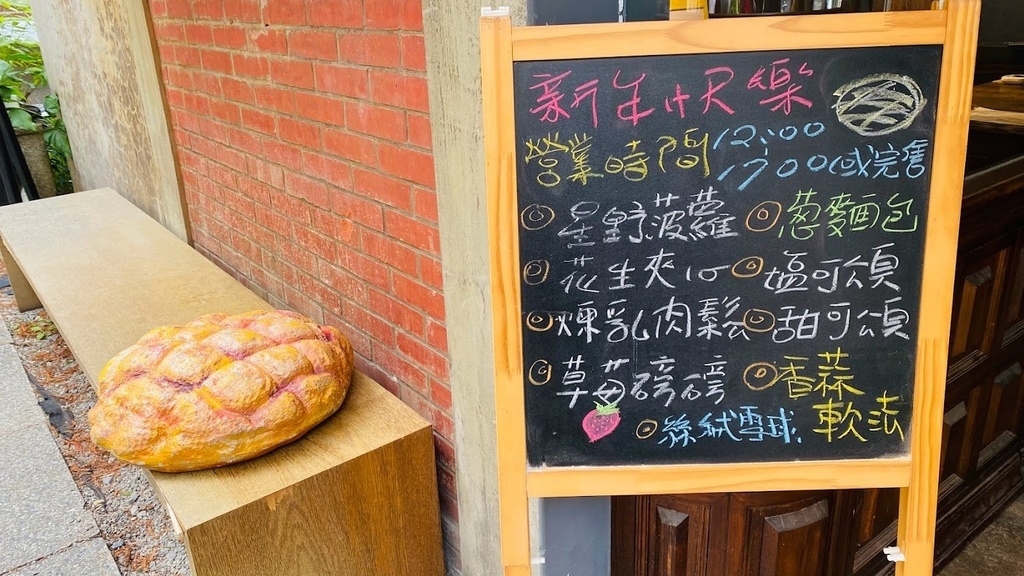 新生ㄐㄧㄝ尺樂
營業時間 12:00
17:00或完售
星野菠蘿 蔥麵包
花生夾心 塩可頌
煉乳肉鬆 甜可頌
草莓磅磅 香蒜
絲絨雪球. 軟法